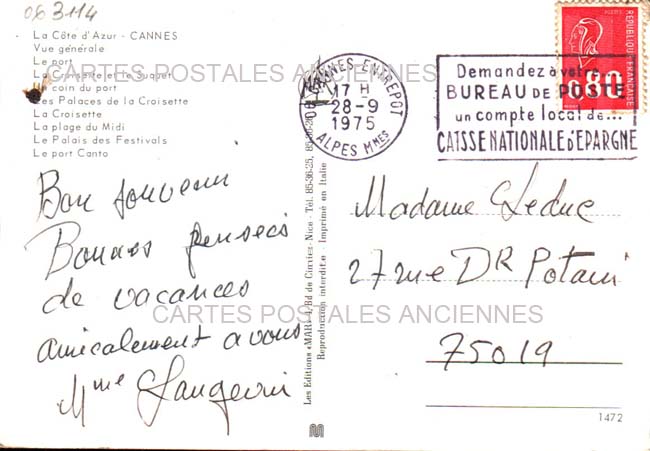 063114
La Côte d'Azur - CANNES
Vue générale
Le port
La Croisette et le Suquet
Un coin du port
Les Palaces de la Croisette
La Croisette
La plage du Midi
Le Palais des Festivals
Le port Canto
CARTES POSTALES ANCIENNES
CANNES-ENTREPOT
17 H
28-9
1975
ALPES Mmes
Demandez à votre
BUREAU DE POSTE
un compte local de...
CAISSE NATIONALE d'EPARGNE
0.80
POSTES
REPUBLIQUE FRANÇAISE
Bon souvenir
Bonnes pensées
de vacances
amicalement a vous
Mme Langevin
Les Editions «MAR» Bd de Nice - Tél. 85-36-25, 85-36-20
Reproduction interdite - Imprimé en Italie
Madame Leduc
27 rue DR Potain
75019
CARTES POSTALES ANCIENNES
1472